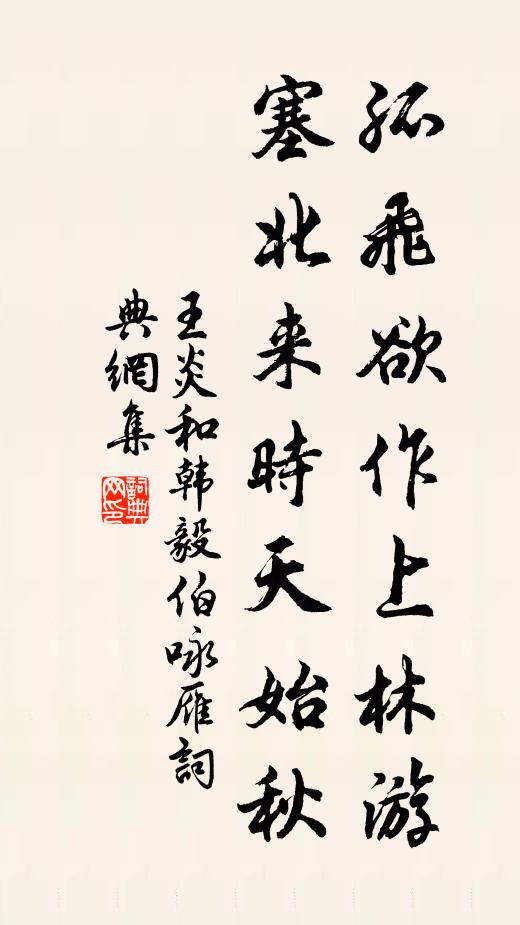 孤飛欲作上林游
塞北来時天始秋
王炎和韩毅伯咏雁詞
典網集
詞典网印